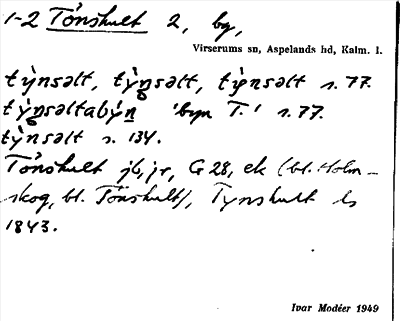 1-2 Tönshult 2, by,
Virserums sn, Aspelands hd, Kalm. l.
ty̍nsəlt, ty̍nsəlt, ty̍nsəlt s. 77.
ty̍nsəltaby̍n 'byn T.' s. 77.
ty̍nsəlt s. 134.
Tönshult jb, jr, G 28, ek (bl. Holm-
skog, bl. Tönshult), Tynshult ls
1843.
Ivar Modéer 1949